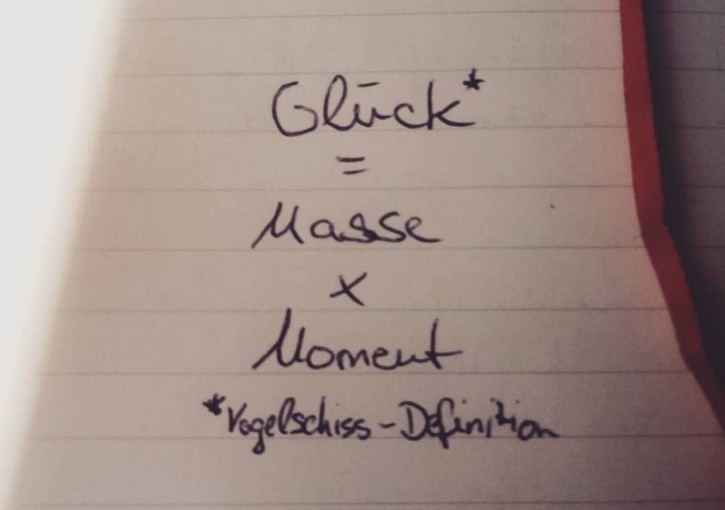 Glück*
=
Masse
x
Moment
*Vogelschiss-Definition